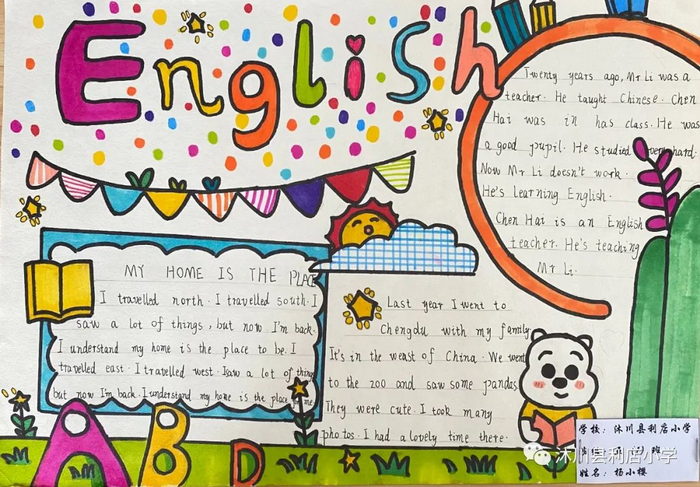 English
Twenty years ago, Mr Li was a
teacher. He taught Chinese. Chen
Hai was in has class. He was
a good pupil. He studied very hard.
Now Mr Li doesn't work.
He's Learning English.
Chen Hai is an English
teacher. He's teaching
Mr Li.
MY HOME IS THE PLACE
I travelled north. I travelled south. I
saw a lot of things, but now I'm back.
I understand my home is the place to be. I
travelled east. I travelled west. I saw a lot of things
but now I'm back. I understand my home is the place
Last year I went to
Chengdu with my family
It's in the weast of China. We went
to the zoo and saw some pandas.
They were cute. I took many
photos. I had a lovely time there.
A B D
学校: 沐川县利店小学
姓名: 杨小樱
沐川县利店小学